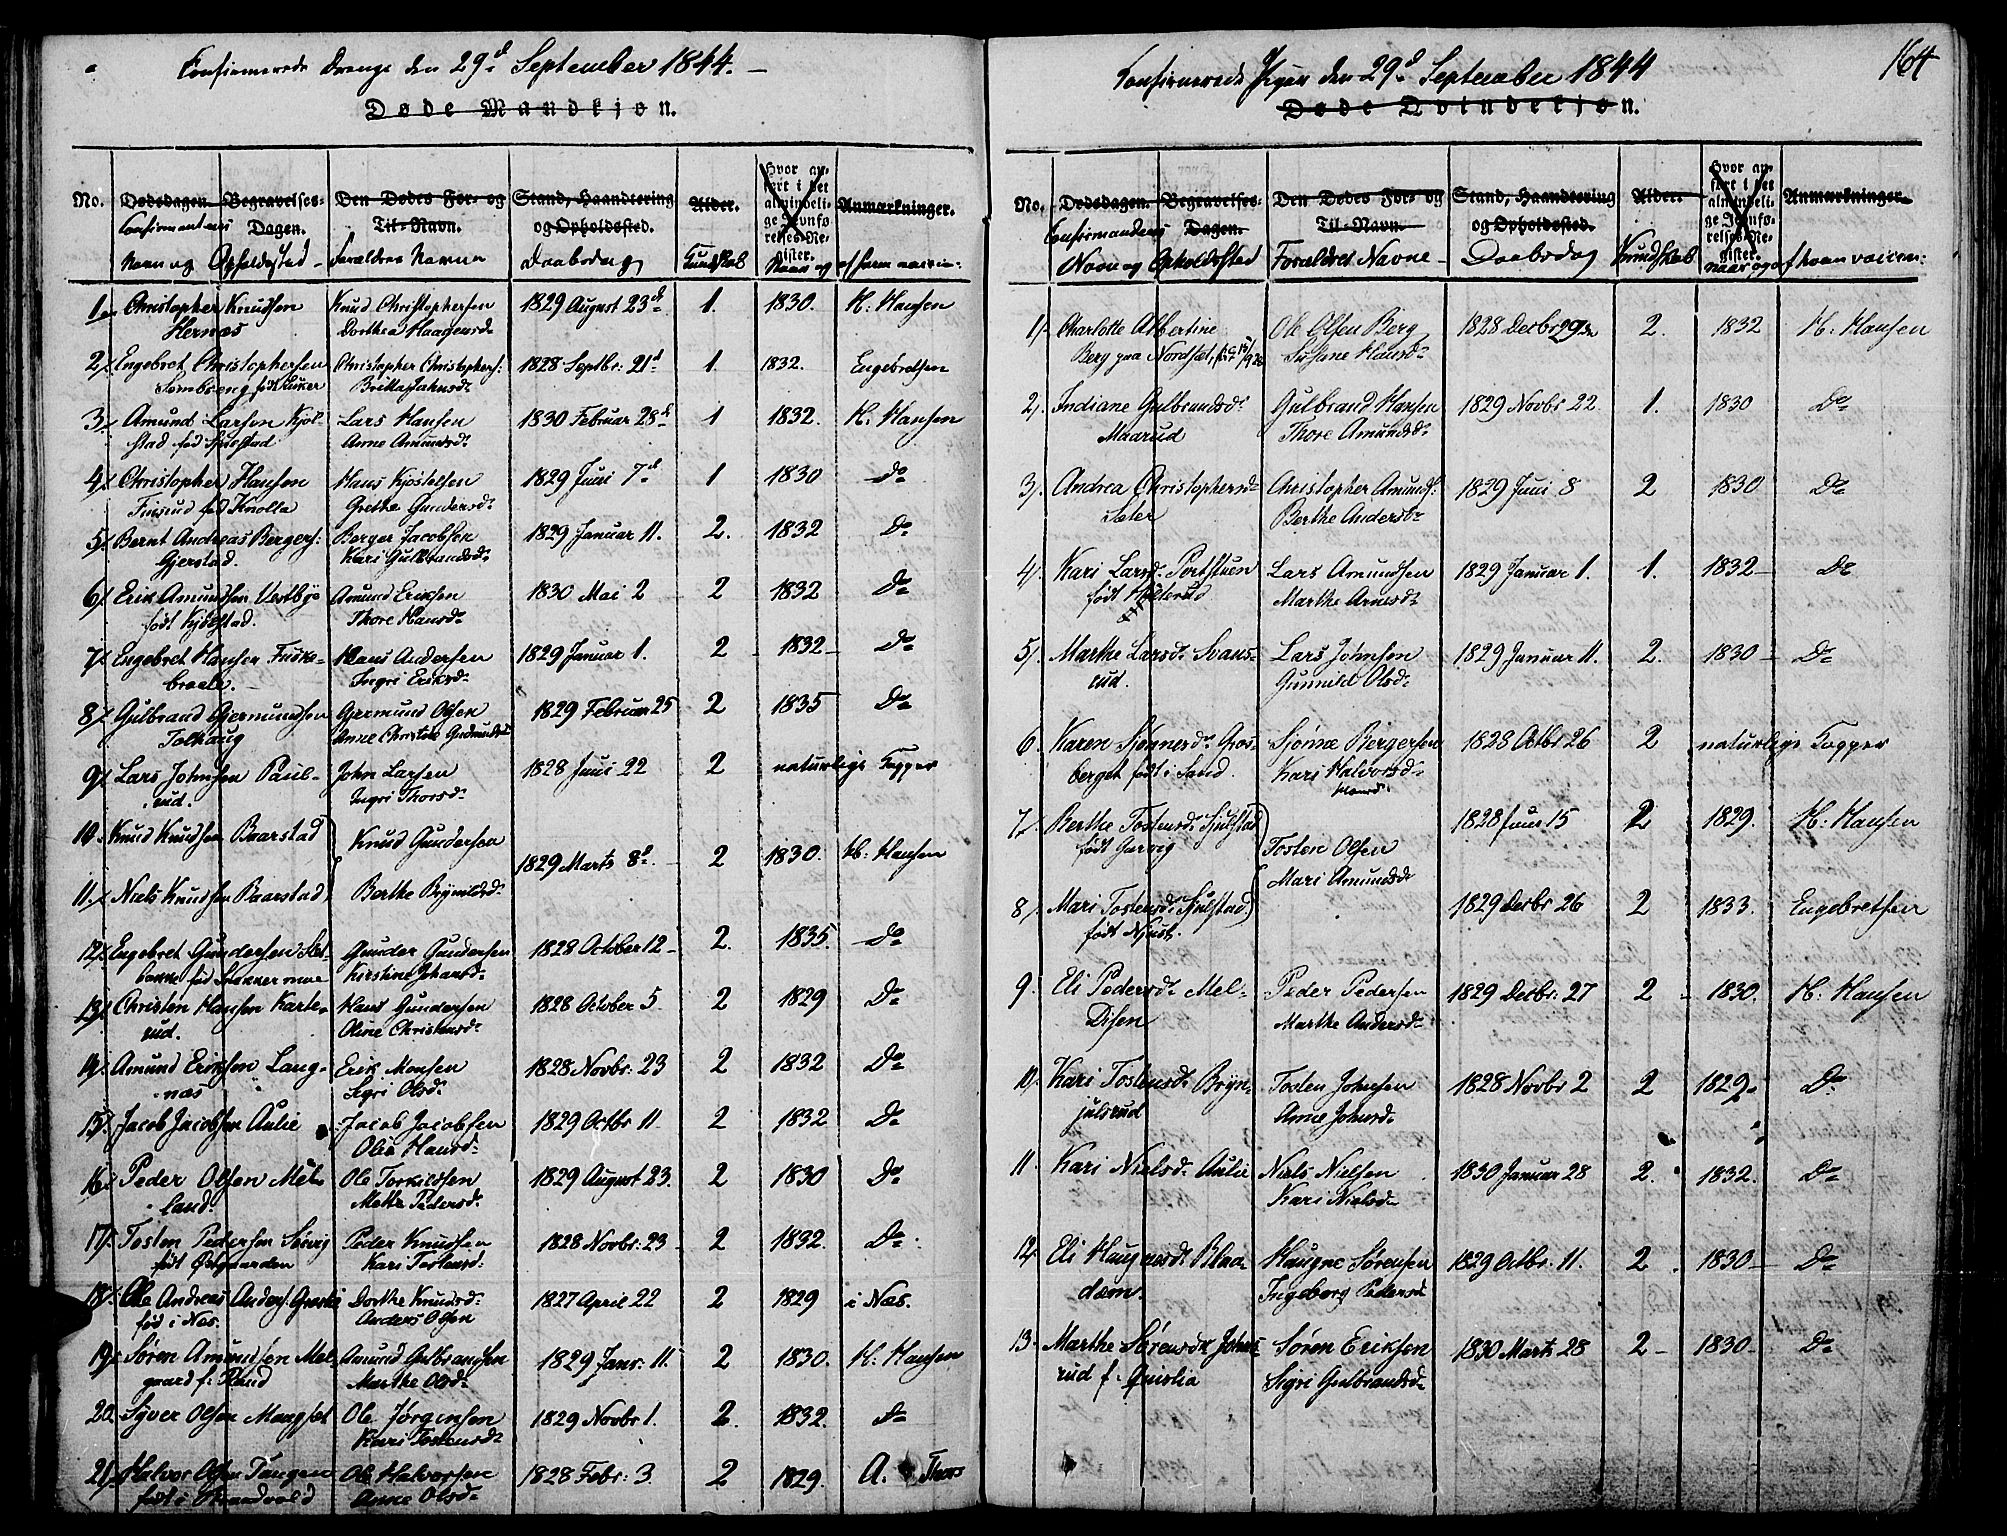 Confirmerede Drenge den 29d September 1844.
Døde Mandkjøn.
No.
Dødsdagen. Begravelses-Dagen. Den Dødes For- og Til-Navn. Stand, Haandtering og Opholdssted. Alder. Hvor anført i det almindelige Jevnførelses-Register. Anmærkninger.
Confirmandens Navn og Opholdssted Forældres Navne Daabsdag Kundskab Naar og af hvem vaccin:
1. Christopher Knudsen Knud Christophersen 1829 August 23d 1. 1830. H: Hansen
Hernæs Dorthea Haagensd:
2. Engebret Christophersen Christopher Christophers: 1828 Septbr: 21d 1. 1832. Engebretsen
3. Amund Larsen Kjøl- Lars Hansen 1830 Februar 28d 1 1832. H. Hansen
stad Anne Amundsd:
4. Christopher Hansen Hans Kjøstelsen 1829 Juni 7d 1 1830 Do
Finsrud fød Knolla Grethe Gundersd:
5. Bernt Andreas Bergers: Berger Jacobsen 1829 Januar 11. 2. 1832 Do
Gjerstad. Kari Gulbrandsd:
6. Erik Amundsen Vestbye Amund Eriksen 1830 Mai 2 2 1832 Do
født Kjølstad. Thore Hansd:
7. Engebret Hansen Fuske- Hans Andersen 1829 Januar 1. 2 1832 Do
Ingri Eriksd:
8. Gulbrand Gjermundsen Gjermund Olsen 1829 Februar 25 2 1835 Do
Tolhaug Anne Christine Gudmundsd:
9. Lars Johnsen Paul- John Larsen 1828 Juni 22 2 naturlige Kopper
rud. Ingri Thorsd:
10. Knud Knudsen Baarstad Knud Gundersen
1829 Marts 8d 2 1830. H: Hansen
11. Niels Knudsen Baarstad Berthe Brynildsd:
12. Engebret Gundersen Gunder Gundersen 1828 October 12 2. 1835. Do
Kirstine Johansd:
13. Christen Hansen Karle- Hans Gundersen 1828 October 5 2 1829 Do
rud. Oline Christensd:
14. Amund Eriksen Lang- Erik Monsen 1828 Novbr: 23 2 1832 Do
næs Sigri Olsd:
15. Jacob Jacobsen Aulie Jacob Jacobsen 1829 Octbr 11 2 1832 Do
Olea Hansd:
16. Peder Olsen Mel- Ole Torkildsen 1829 August 23. 2 1830 Do
land. Mathe Pedersd:
17. Tosten Pedersen Sørvig Peder Knudsen 1828 Novbr: 23 2 1832. Do
født Østgaarden Kari Tostensd:
18. Ole Andreas Anders. Dorthe Knudsd: 1827 April 22 2 1829 i Næs.
fød i Næs. Anders Olsen
19. Søren Amundsen Mel- Amund Gulbrandsen 1829 Janr: 11. 2 1830. H: Hansen
gaard f: Rand Marthe Olsd:
20. Syver Olsen Mangset Ole Jørgensen 1829 Novbr 1. 2. 1832. Do
Kari Tostensd:
21. Halvor Olsen Tangen Ole Halvorsen 1828 Febr: 3 2 1829. A. Thors
født i Strandvold Anne Olsd:
164
Confirmerede Piger den 29d September 1844
Døde Qvindekjøn.
No.
Dødsdagen. Begravelses-Dagen. Den Dødes For- og Til-Navn. Stand, Haandtering og Opholdssted. Alder. Hvor anført i det almindelige Jevnførelses-Register. Anmærkninger.
Confirmandens Navn og Opholdssted Forældres Navne Daabsdag Kundskab naar og af hvem vaccin:
1. Charlotte Albertine Ole Olsen Berg 1828 Decbr 29d 2. 1832 H: Hansen
Berg paa Nordset, Susane Hansd:
2. Indiane Gulbrandsd: Gulbrand Hansen 1829 Novbr 22 1. 1830 Do
Maarud Thore Amundsd:
3. Andrea Christophersd: Christopher Amunds: 1829 Juni 8 2 1830 Do
Sæter Berthe Andersd:
4. Kari Larsd: Portstuen Lars Amundsen 1829 Januar 1. 1. 1832 Do
født Marthe Arnesd:
5. Marthe Larsd: Svans- Lars Johnsen 1829 Januar 11. 2. 1830 Do
rud. Gunnild Olsd:
6. Karen Sjønnesd: Gros- Sjønne Bergersen 1828 Octbr 26 2 naturlige Kopper
berget født i Sand. Kari Halvorsd:
Hansd:
7. Berthe Tostensd: Sjulstad 1828 Juni 15 2 1829. H: Hansen
født Gjervig Tosten Olsen
Mari Amundsd:
8. Mari Tostensd: Sjulstad 1829 Decbr 26 2 1833. Engebretsen
født
9. Eli Pedersd: Mel- Peder Pedersen 1829 Decbr: 27 2 1830. H: Hansen
Disen Marthe Andersd:
10. Kari Tostensd: Bryn- Tosten Johnsen 1828 Novbr 2 2 1829. Do
julsrud Anne Johnsd:
11. Kari Nielsd: Aulie Niels Nielsen 1830 Januar 28 2. 1832. Do
Kari Nielsd:
12. Eli Haugnesd: Blaa- Haugne Sørensen 1829 Octbr. 11. 2 1830 Do
dam. Ingeborg Pedersd:
13. Marthe Sørensd: Johns- Søren Eriksen 1830 Marts 28 2 1830 Do
rud f. Qvislia Sigri Gulbrandsd: